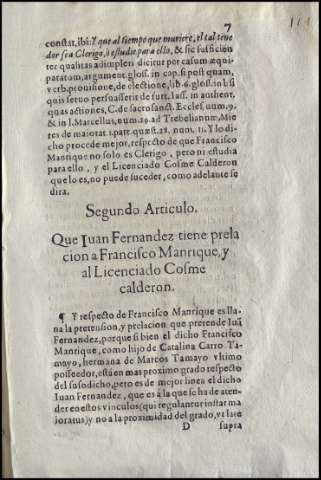 7
constat, ibi: Y que al tiempo que muriere, el tal tene
dor sea Clerigo, ò estudie para ello, & sic sufficien
ter qualitas adimpleri dicitur per casum æqui-
paratum, argument. gloss. in cap. si post quam,
verb. prouisione, de electione, lib. 6. gloss. in l. si
quis seruo persuasserit de furt. Iass. in authent.
quas actiones, C. de sacrosanct. Eccles. num. 9.
& in l. Marcellus, num. 29. ad Trebelianum. Mie
res de maiorat. 1. part. quæst. 28. num. 11. Y lo di-
cho procede mejor, respecto de que Francisco
Manrique no solo es Clerigo, pero ni estudia
para ello, y el Licenciado Cosme Calderon
que lo es, no puede suceder, como adelante se
dira.
Segundo Articulo.
Que Iuan Fernandez tiene prela
cion a Francisco Manrique, y
al Licenciado Cosme
calderon.
¶ Y respecto de Francisco Manrique es lla-
na la pretension, y prelacion que pretende Iuã
Fernandez, porque si bien el dicho Francisco
Manrique, como hijo de Catalina Carro Ta-
mayo, hermana de Marcos Tamayo vltimo
posseedor, està en mas proximo grado respecto
del susodicho, pero es de mejor linea el dicho
Iuan Fernandez, que es a la que se ha de aten-
der en estos vinculos (qui regulantur instar ma
ioratus) y no a la proximidad del grado, vt late
D supra